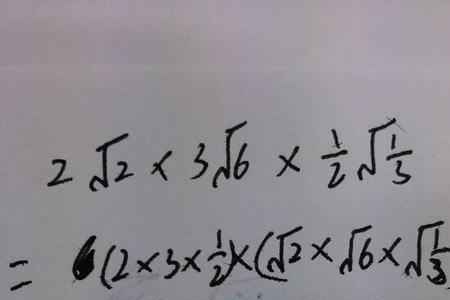 2√2 × 3√6 × 1/2 √1/3
= (2×3×1/2)×(√2×√6×√1/3